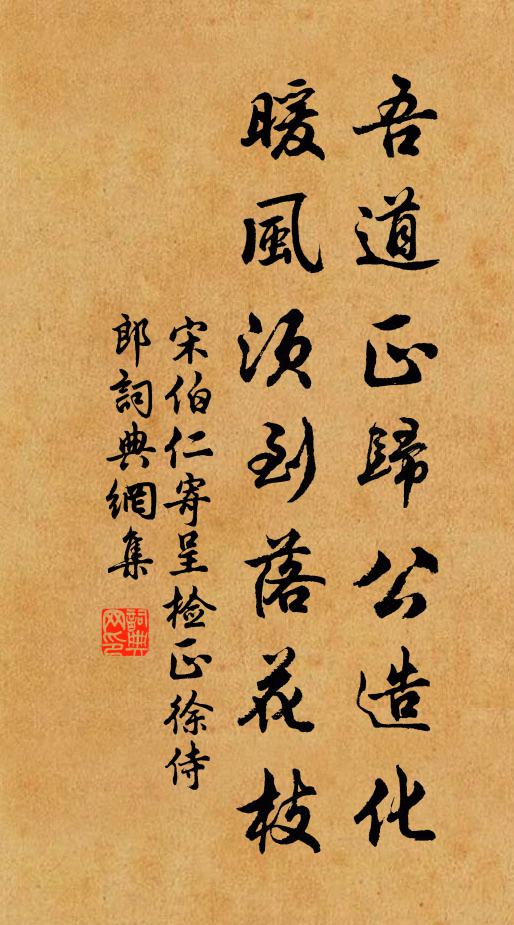 吾道正歸公造化
暖風須到落花枝
宋伯仁寄呈检正徐侍
郎詞典網集
詞典
网印